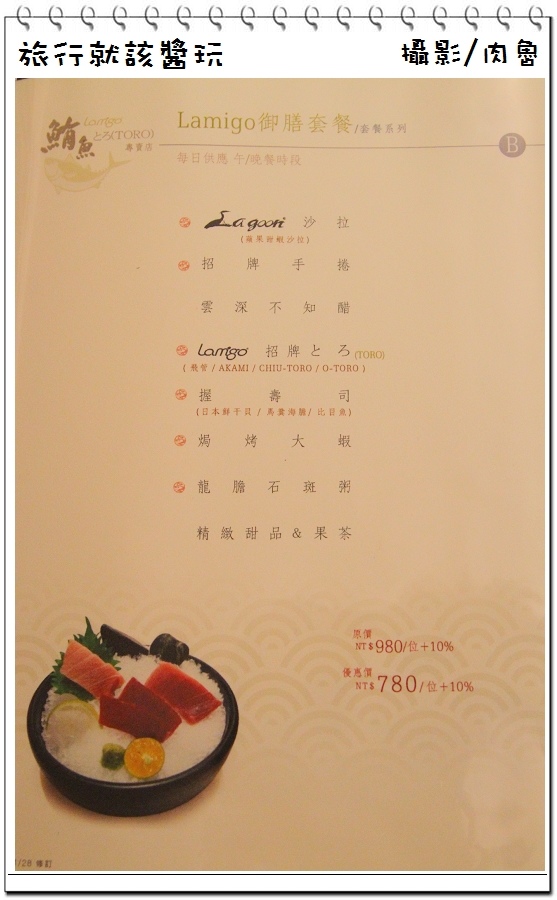 旅行就該醬玩
攝影/肉魯
Lamigo
鮪魚とろ(TORO)
專賣店
Lamigo御膳套餐/套餐系列
B
每日供應 午/晚餐時段
Lagoon 沙拉
(蘋果甜蝦沙拉)
招牌手捲
雲深不知醋
Lamigo 招牌とろ(TORO)
( 飛管 / AKAMI / CHIU-TORO / O-TORO )
握壽司
(日本鮮干貝 / 馬糞海膽/ 比目魚)
焗烤大蝦
龍膽石斑粥
精緻甜品&果茶
原價
NT$980/位+10%
優惠價
NT$780/位+10%
/28 修訂